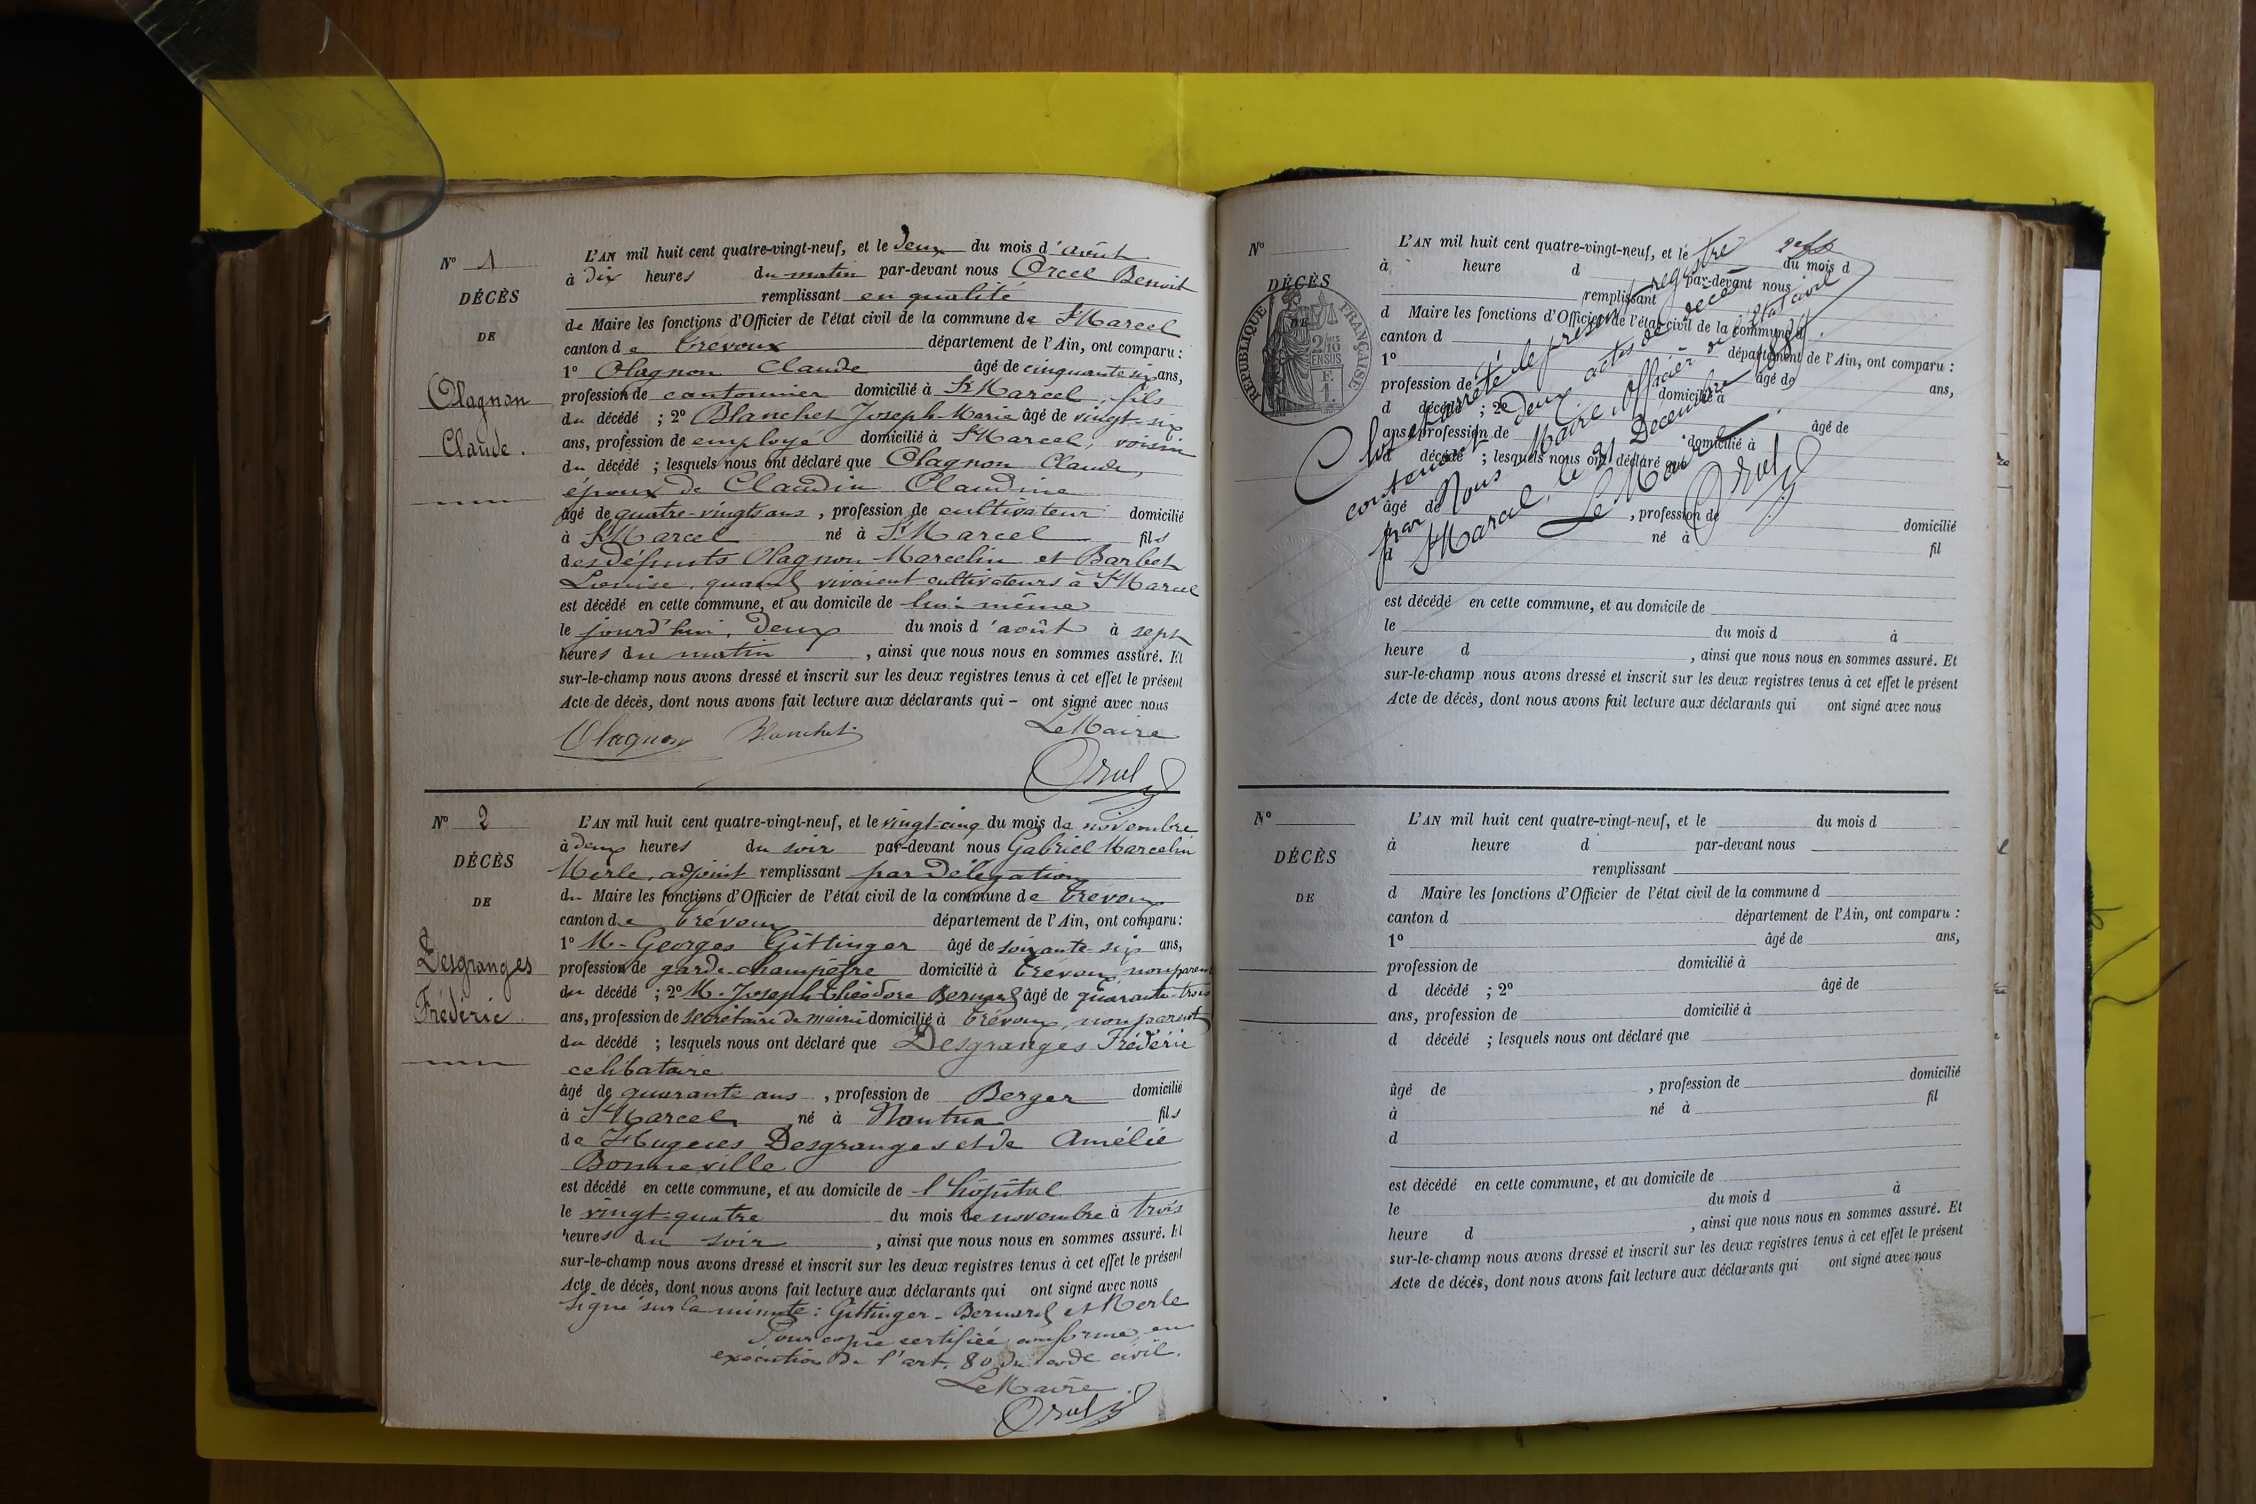 N° 1
DÉCÈS
DE
Olagnon
Claude.
L'AN mil huit cent quatre-vingt-neuf, et le deux du mois d'août
à dix heures du matin par-devant nous Orcel Benoit
remplissant en qualité
de Maire les fonctions d'Officier de l'état civil de la commune de St Marcel
canton de Trévoux département de l'Ain, ont comparu :
1° Olagnon Claude âgé de cinquante six ans,
profession de cantonnier domicilié à St Marcel, fils
du décédé ; 2° Blanchet Joseph Marie âgé de vingt-six
ans, profession de employé domicilié à St Marcel, voisin
du décédé ; lesquels nous ont déclaré que Olagnon Claude,
époux de Claudin Claudine
âgé de quatre-vingts ans, profession de cultivateur domicilié
à St Marcel né à St Marcel fils
des défunts Olagnon Marcelin et Barbet
Louise, quand vivaient cultivateurs à St Marcel
est décédé en cette commune, et au domicile de lui-même
le jourd'hui, deux du mois d'août à sept
heures du matin, ainsi que nous nous en sommes assuré. Et
sur-le-champ nous avons dressé et inscrit sur les deux registres tenus à cet effet le présent
Acte de décès, dont nous avons fait lecture aux déclarants qui – ont signé avec nous
Olagnon Blanchet Le Maire
Orcel
N° 2
DÉCÈS
DE
Desgranges
Frédéric.
L'AN mil huit cent quatre-vingt-neuf, et le vingt-cinq du mois de novembre
à deux heures du soir par-devant nous Gabriel Marcelin
Merle, adjoint remplissant par délégation
du Maire les fonctions d'Officier de l'état civil de la commune de Trevoux
canton de Trévoux département de l'Ain, ont comparu :
1° M. Georges Gittinger âgé de soixante-six ans,
profession de garde-champêtre domicilié à Trevoux, non parent
du décédé ; 2° M. Joseph Théodore Bernard âgé de quarante-trois
ans, profession de secrétaire de mairie domicilié à Trévoux, non parent
du décédé ; lesquels nous ont déclaré que Desgranges Frédéric
celibataire
âgé de quarante ans, profession de Berger domicilié
à St Marcel, né à Nantua fils
de Hugues Desgranges et de Amélie
Bonneville
est décédé en cette commune, et au domicile de l'hôpital
le vingt-quatre du mois de novembre à trois
heures du soir, ainsi que nous nous en sommes assuré. Et
sur-le-champ nous avons dressé et inscrit sur les deux registres tenus à cet effet le présent
Acte de décès, dont nous avons fait lecture aux déclarants qui ont signé avec nous
Signé sur la minute : Gittinger - Bernard et Merle
Pour copie certifiée conforme, en
exécution de l'art. 80 du code civil.
Le Maire
Orcel
N°
DÉCÈS
DE
RÉPUBLIQUE FRANÇAISE
2/10
EN SUS
L'AN mil huit cent quatre-vingt-neuf, et le du mois d
à heure d par-devant nous
remplissant
d Maire les fonctions d'Officier de l'état civil de la commune d
canton d département de l'Ain, ont comparu :
1° âgé de ans,
profession de domicilié à
d décédé ; 2° âgé de
ans, profession de domicilié à
d décédé ; lesquels nous ont déclaré que
âgé de , profession de domicilié
né à fil
d
est décédé en cette commune, et au domicile de
le du mois d à
heure d , ainsi que nous nous en sommes assuré. Et
sur-le-champ nous avons dressé et inscrit sur les deux registres tenus à cet effet le présent
Acte de décès, dont nous avons fait lecture aux déclarants qui ont signé avec nous
Clos et arrêté le présent registre
contenant deux actes de décès
par Nous Maire, officier de l'état civil
St Marcel, le 31 Decembre
Le Maire
Orcel
N°
DÉCÈS
DE
L'AN mil huit cent quatre-vingt-neuf, et le du mois d
à heure d par-devant nous
remplissant
d Maire les fonctions d'Officier de l'état civil de la commune d
canton d département de l'Ain, ont comparu :
1° âgé de ans,
profession de domicilié à
d décédé ; 2° âgé de
ans, profession de domicilié à
d décédé ; lesquels nous ont déclaré que
âgé de , profession de domicilié
à né à fil
d
est décédé en cette commune, et au domicile de
le du mois d à
heure d , ainsi que nous nous en sommes assuré. Et
sur-le-champ nous avons dressé et inscrit sur les deux registres tenus à cet effet le présent
Acte de décès, dont nous avons fait lecture aux déclarants qui ont signé avec nous